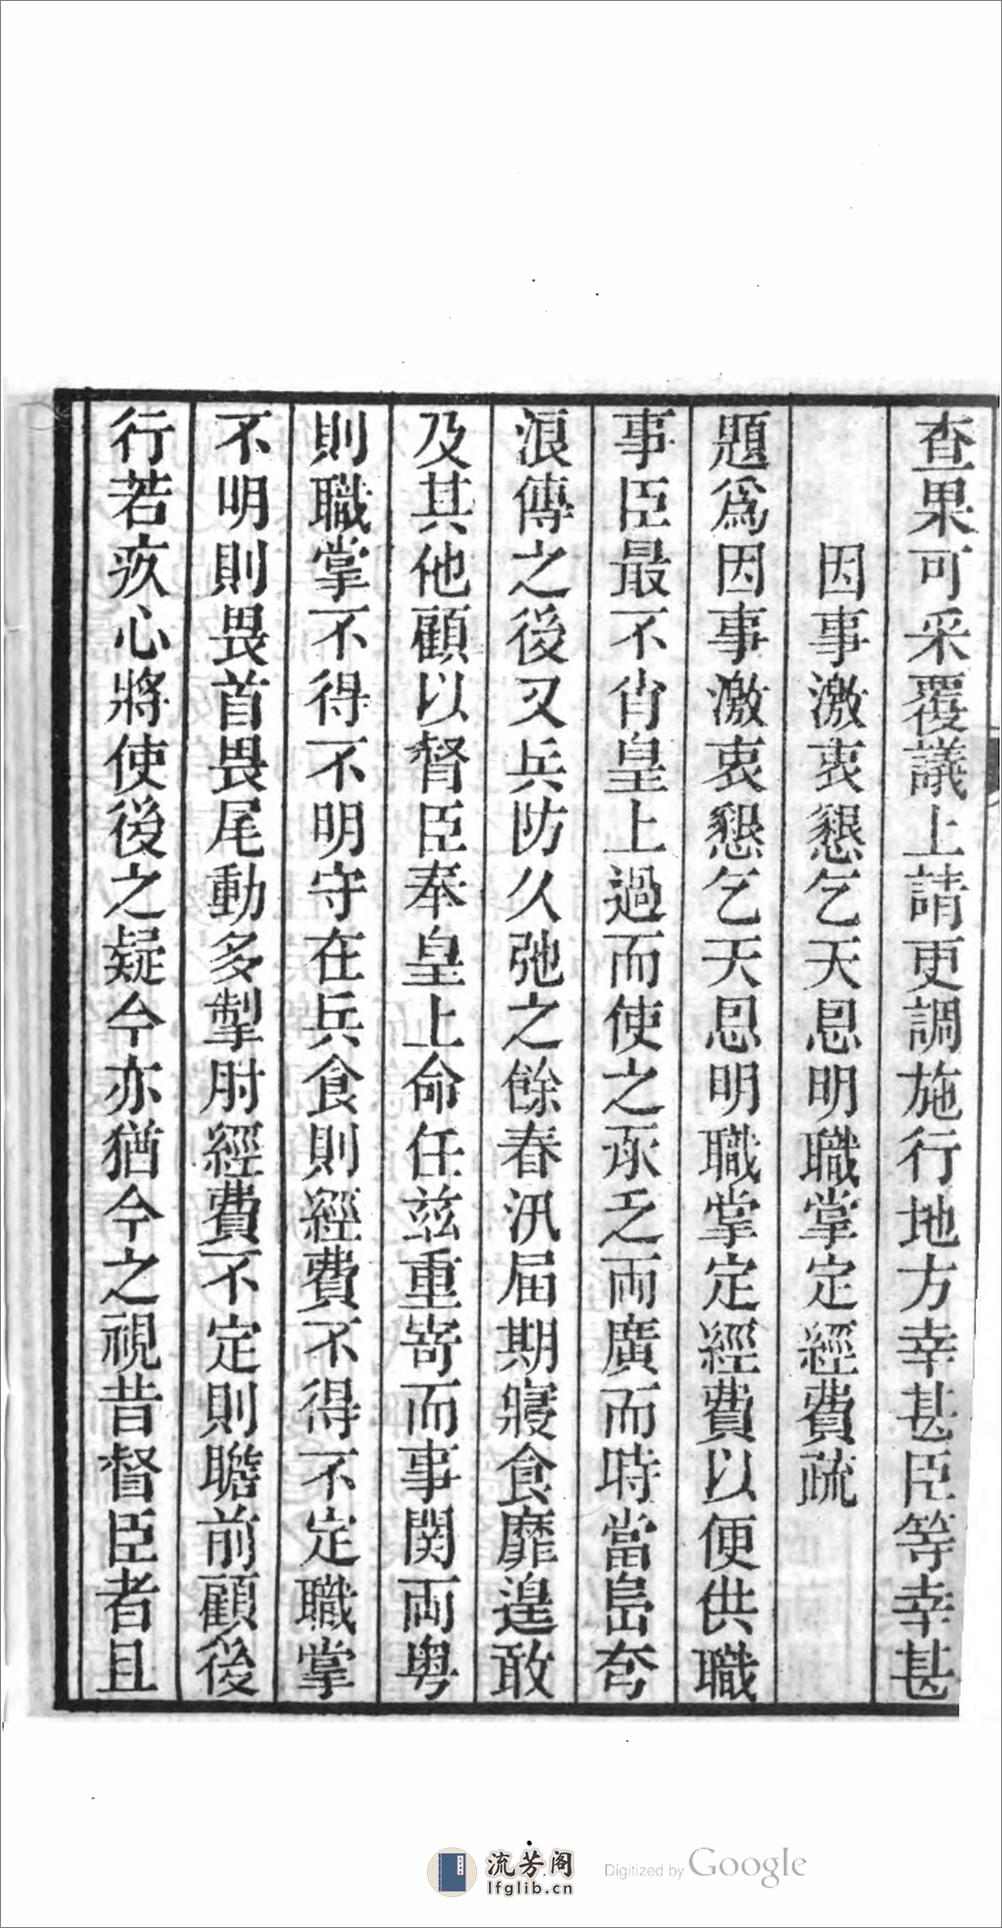 查果可采覆議上請更調施行地方幸甚臣等幸甚
因事激衷懇乞天恩明職掌定經費疏
題爲因事激衷懇乞天恩明職掌定經費以便供職
事臣最不肖皇上過而使之承乏兩廣而時當島夸
浪傳之後又兵防久弛之餘春汛屆期寢食靡遑敢
及其他顧以督臣奉皇上命任兹重寄而事関兩粤
則職掌不得不明守在兵食則經費不得不定職掌
不明則畏首畏尾動多掣肘經費不定則瞻前顧後
行若疚心將使後之疑今亦猶今之視昔督臣者且
流芳阁
lfglib.cn
Digitized by Google